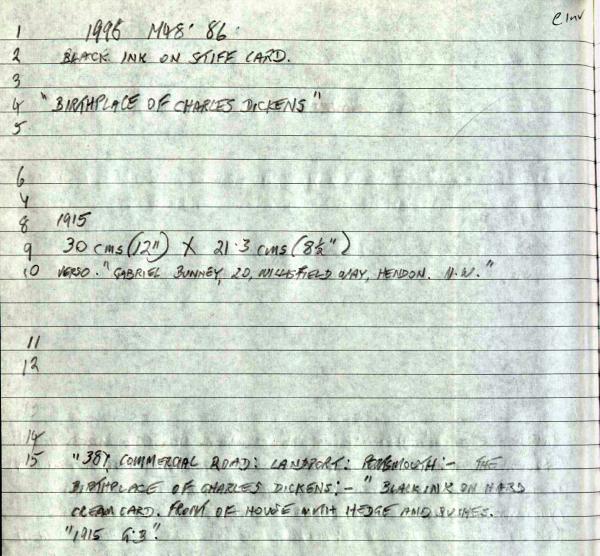 e Inv
1 1996 M48. 86.
2 BLACK INK ON STIFF CARD.
3
4 "BIRTHPLACE OF CHARLES DICKENS"
5
6
8 1915
9 30 cms (12") X 21.3 cms (8½")
10 VERSO. "GABRIEL BUNNEY, 20, WILLIFIELD WAY, HENDON. N.W."
11
12
14
15 "387 COMMERCIAL ROAD: LANDPORT: PORTSMOUTH:- THE
BIRTHPLACE OF CHARLES DICKENS:- " BLACK INK ON HARD
CREAM CARD. FRONT OF HOUSE WITH HEDGE AND BUSHES.
"1915 G.B".